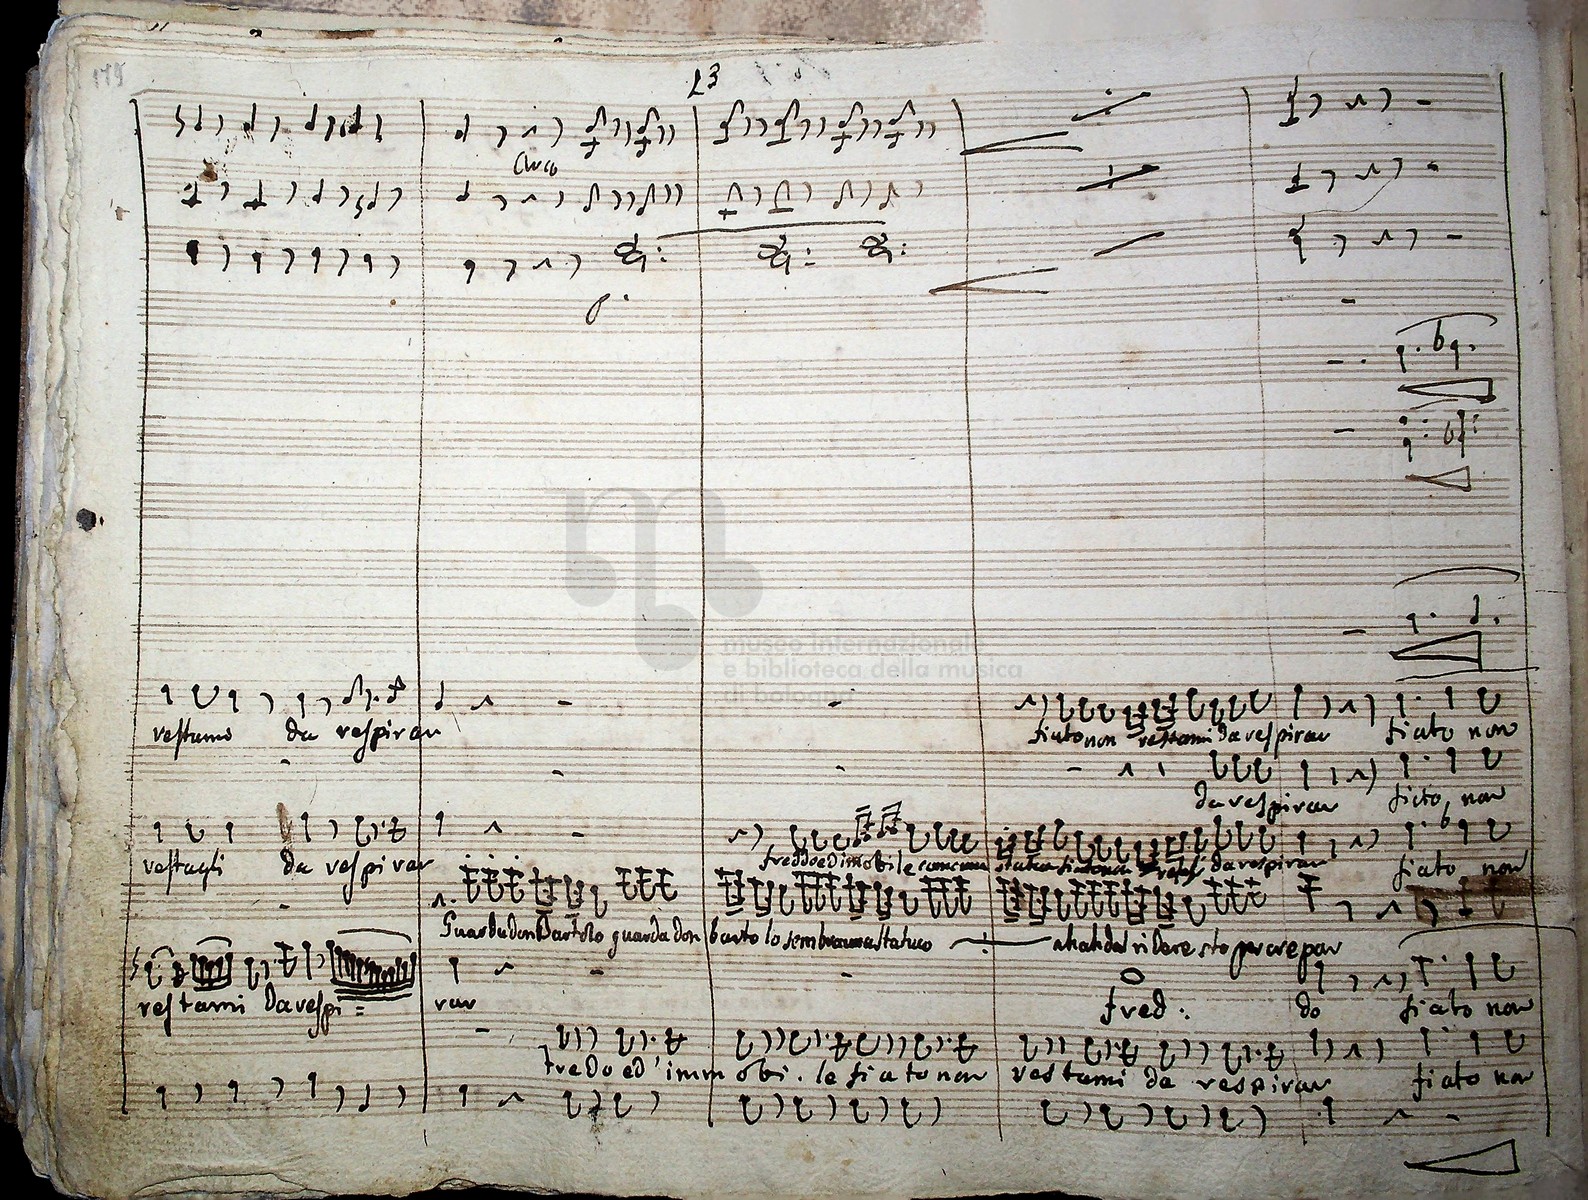 175
23
Arco
museo internazionale
e biblioteca della musica
di bologna
restami da respirar
fiato non restami da respirar fiato non
da respirar fiato, non
restagli da respirar
freddo ed immobile come una statua fiato non restagli da respirar fiato non
Guarda don Bartolo guarda don Bartolo sembra una statua ah ah dal ridere sto per crepar
restami da respi=
rar
fred: do fiato non
fredo ed' immobi. le fiato non restami da respirar fiato non